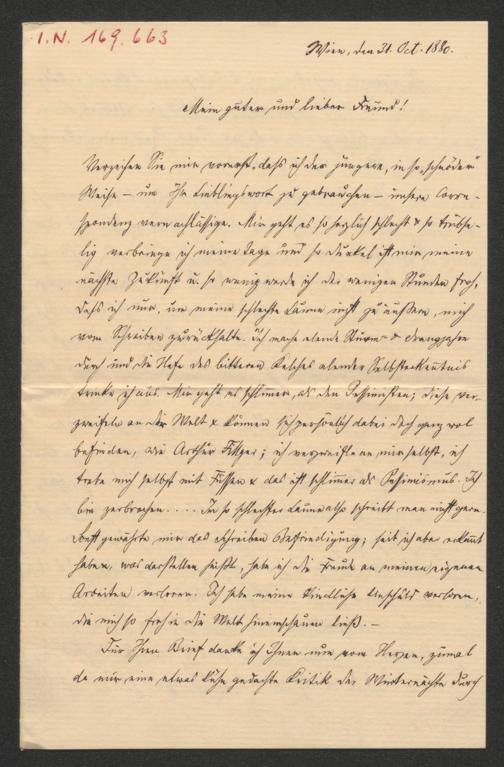 I.N. 169.663
Wien, den 31. Oct. 1880.
Mein guter und lieber Freund!
Verzeihen Sie mir vorerst, daß ich der jüngere, in so „schnöder“
Weise – um Ihr Lieblingswort zu gebrauchen – unsere Corre-
spondenz vernachlässige. Mir geht es so herzlich schlecht & so trübse-
lig verbringe ich meine Tage und so dunkel ist mir meine
nächste Zukunft u. so wenig werde ich der wenigen Stunden froh,
daß ich nur, um meine schlechte Laune nicht zu äußern, mich
vom Schreiben zurückhalte. Ich mache elende Sturm- & Drangjahre
durch und die Hefe des bitteren Kelches elender Selbsterkenntnis
trinke ich aus. Mir geht es schlimmer, als den Pessimisten; diese ver-
zweifeln an der Welt & können sich persönlich dabei doch ganz wol
befinden, wie Arthur Fitger; ich verzweifle an mir selbst, ich
trete mich selbst mit Füssen & das ist schlimmer als Pessimismus. Ich
bin zerbrochen .... In so schlechter Laune also schreibt man nicht gern.
Sonst gewährte mir das Schreiben Befriedigung; seit ich aber erkannt
habe, was darstellen heißt, habe ich die Freude an meinen eigenen
Arbeiten verloren. Ich habe meine kindliche Unschuld verloren,
die mich so froh in die Welt hineinschauen ließ. –
Für Ihren Brief danke ich Ihnen nun vom Herzen, zumal
da mir eine etwas kühn gedachte Kritik der Winternächte durch